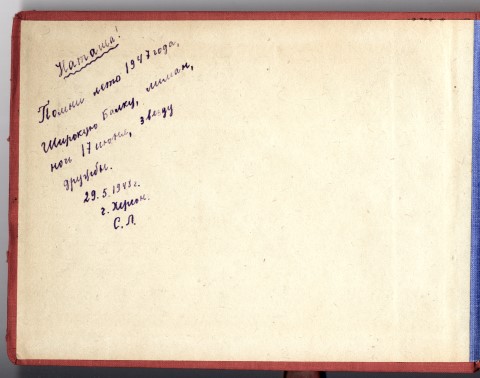 Наташа!
Помни лето 1947 года,
Широкую Балку, лиман,
ночь 17 июня, звезду
дружбы.
29.5.1948 г.
г. Херсон.
С.Л.